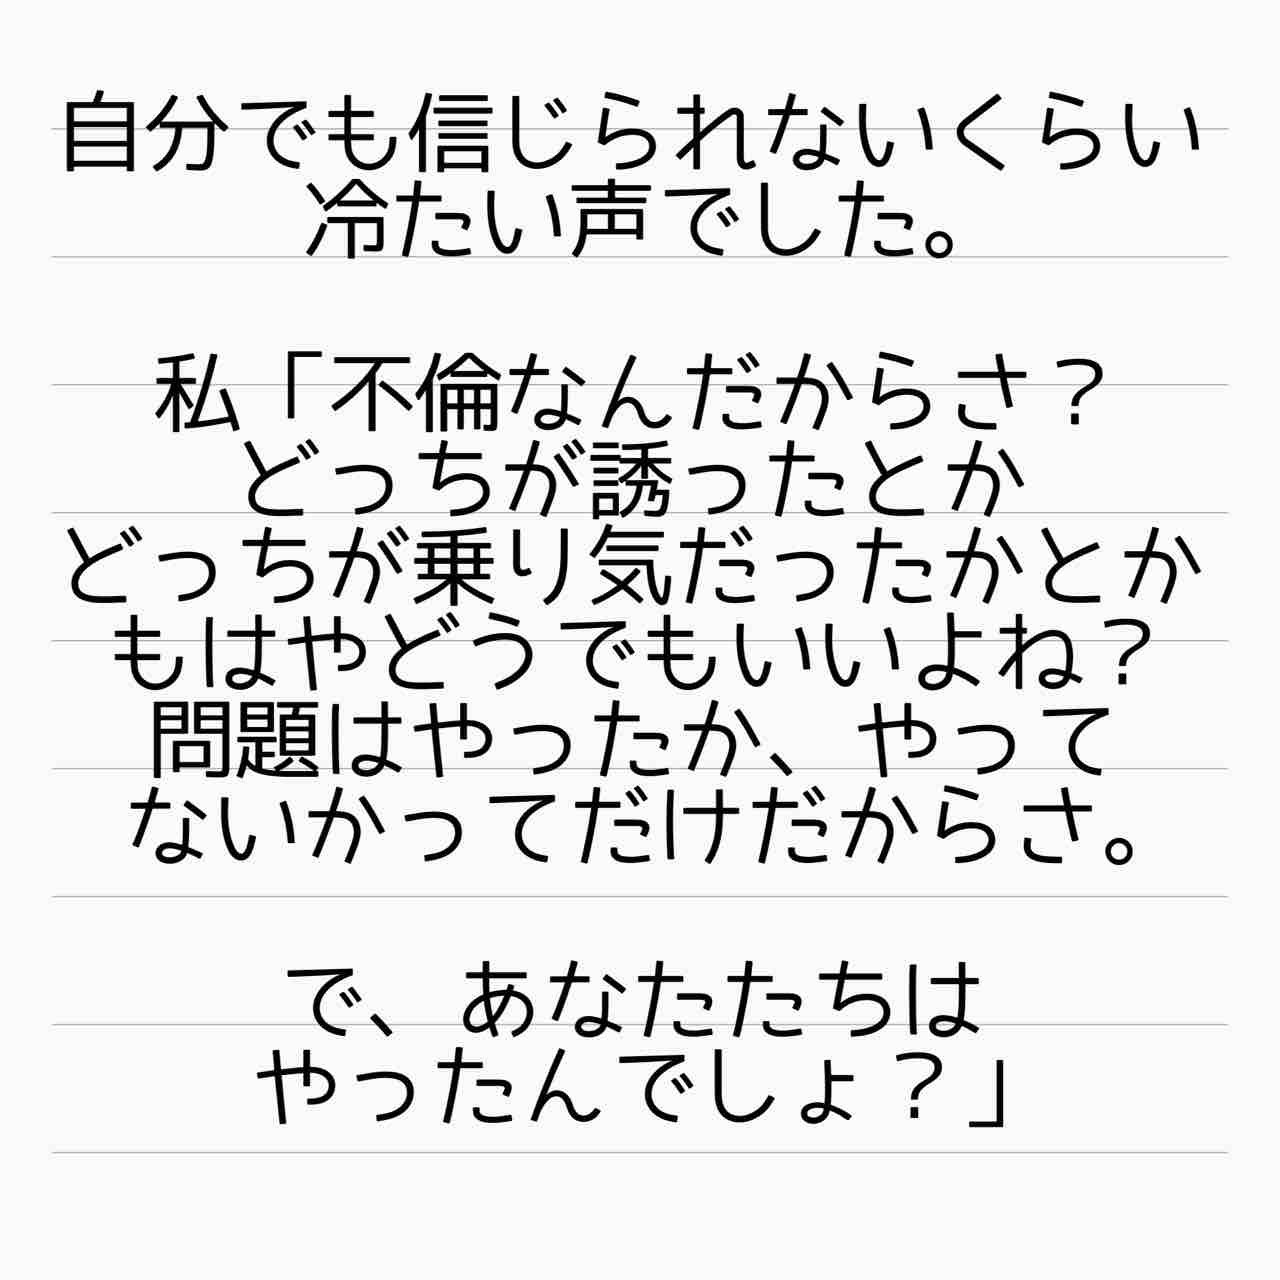 自分でも信じられないくらい
冷たい声でした。
私「不倫なんだからさ？
どっちが誘ったとか
どっちが乗り気だったかとか
もはやどうでもいいよね？
問題はやったか、やって
ないかってだけだからさ。
で、あなたたちは
やったんでしょ？」